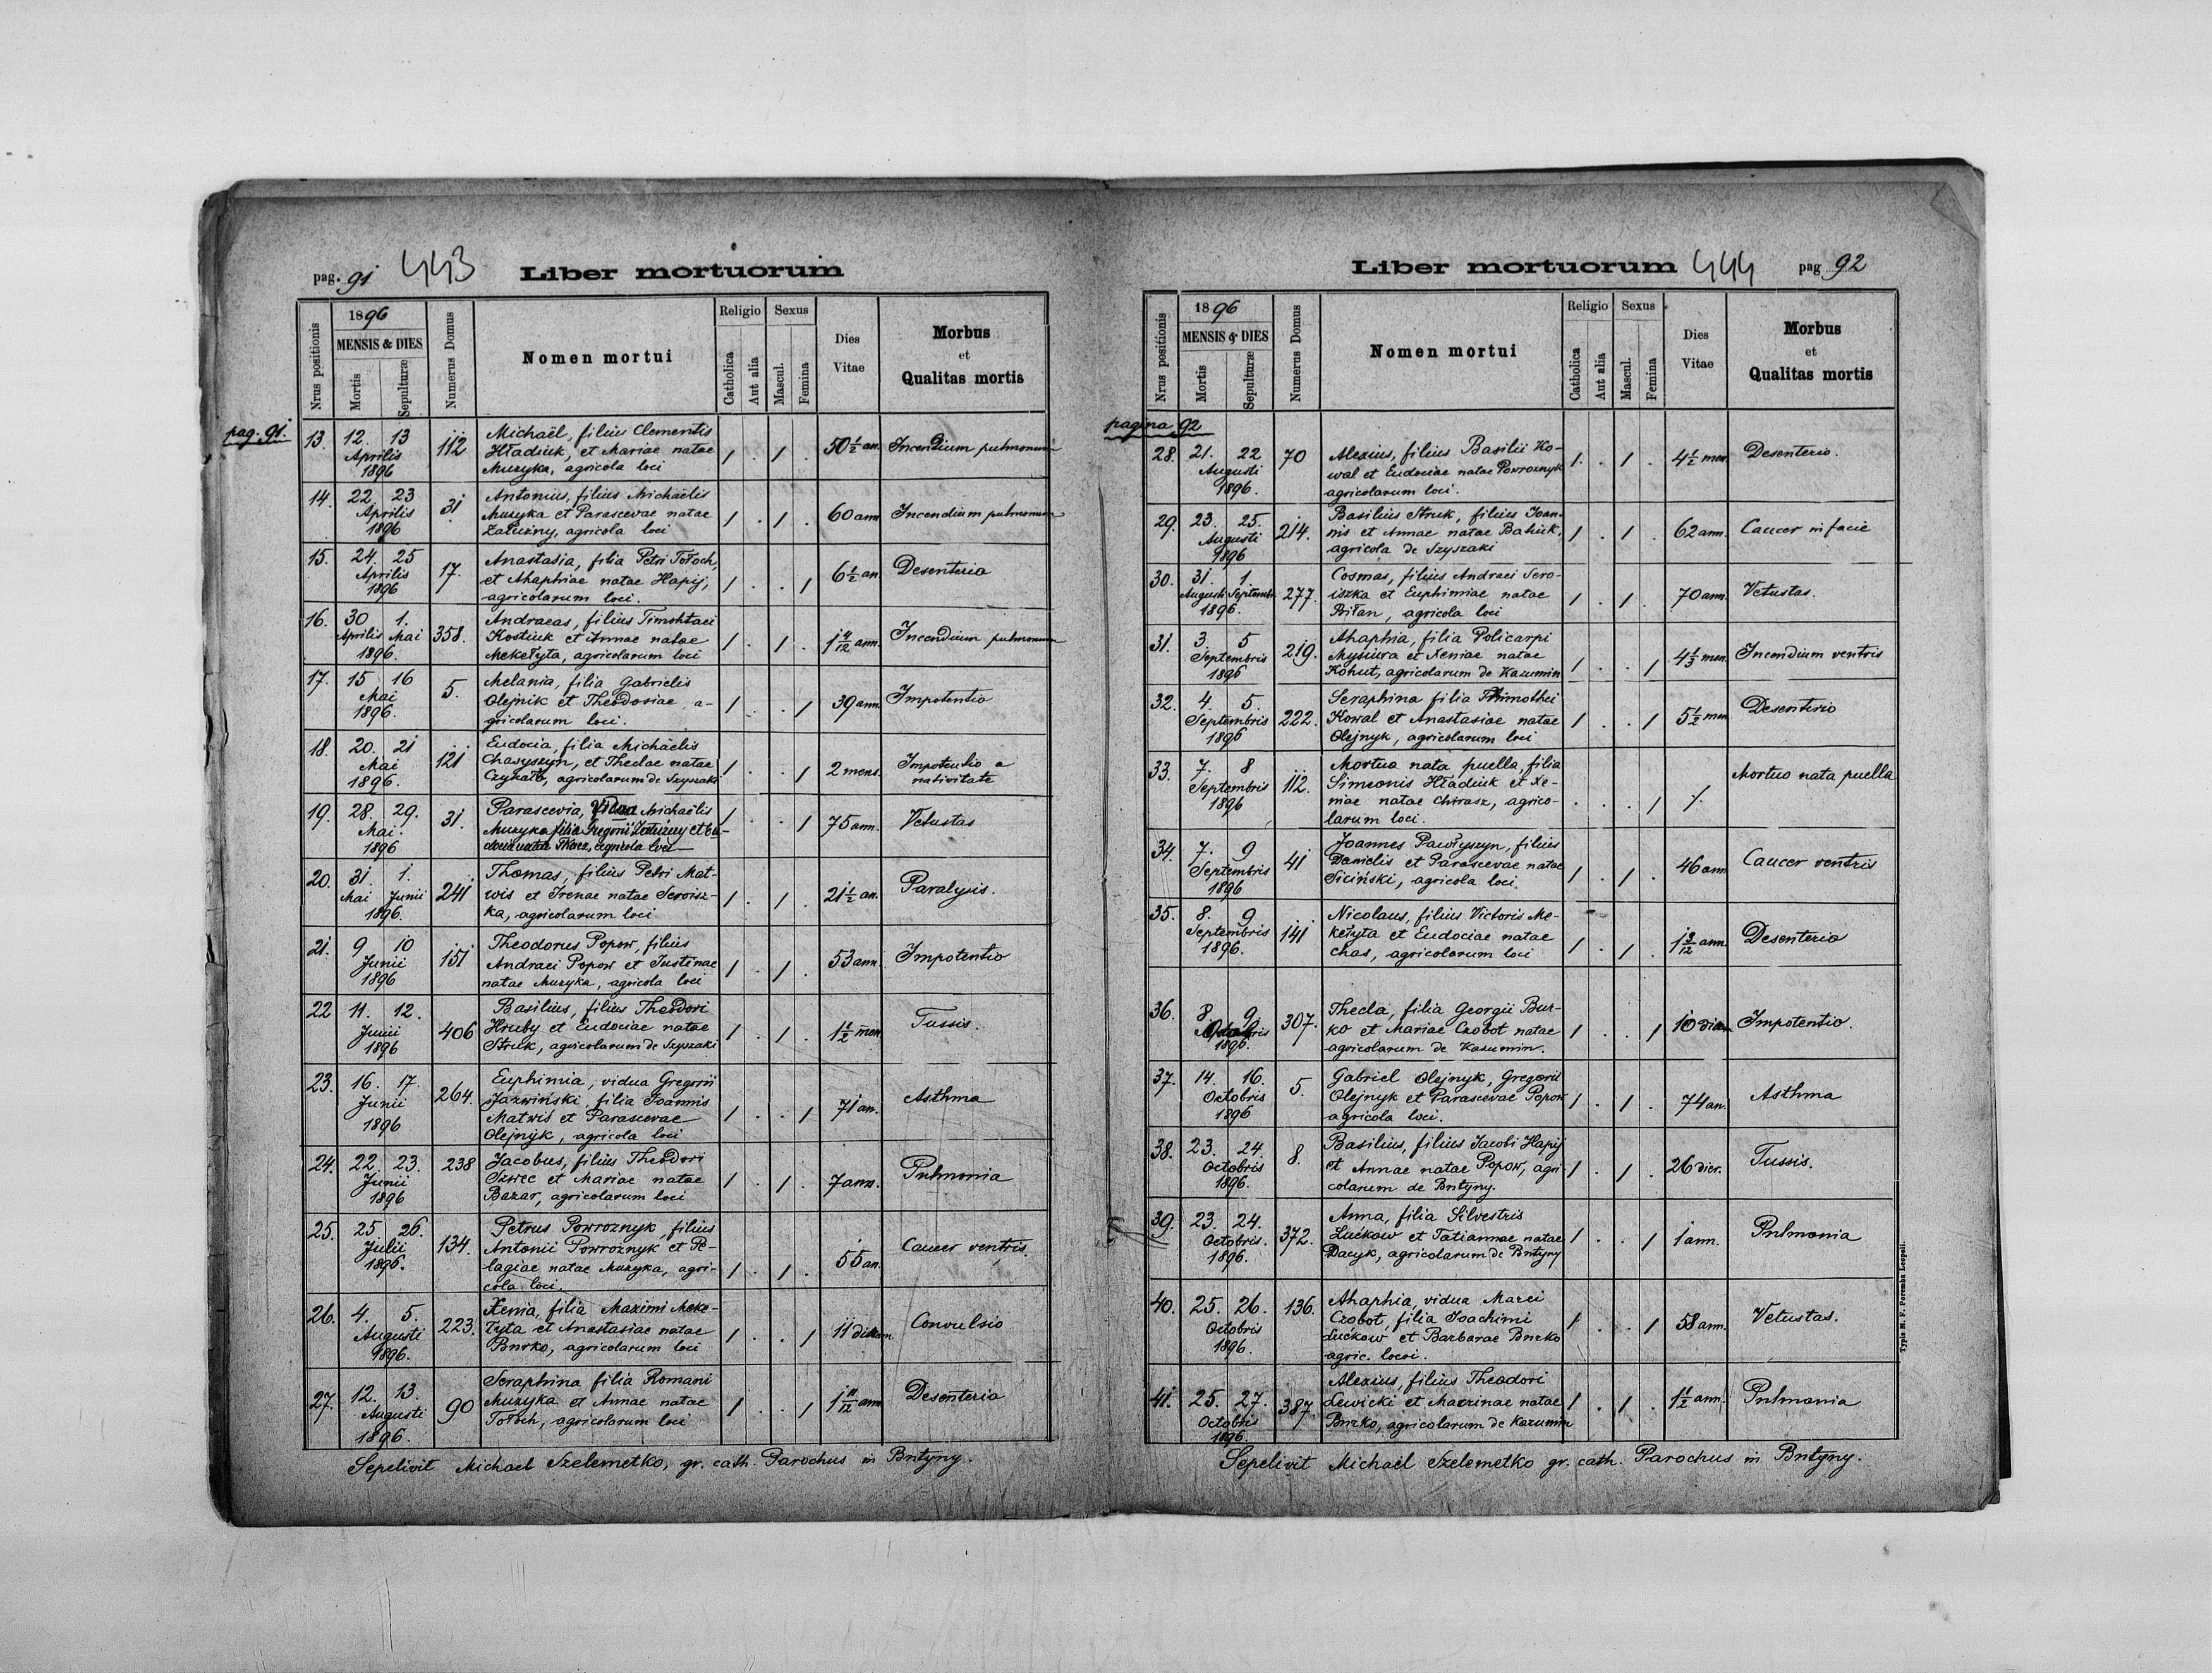 pag. 91 443 Liber mortuorum
Nrus positionis
1896
MENSIS & DIES
Mortis
Sepulturæ
Numerus Domus
Nomen mortui
Religio
Catholica
Aut alia
Sexus
Mascul.
Femina
Dies
Vitae
Morbus
et
Qualitas mortis
pag. 91.
13. 12. 13 Aprilis 1896 112 Michaël, filius Clementis
Hładiuk, et Mariae natae
Muzyka, agricola loci
1 . 1 . 50 1/2 an. Incendium pulmonum
14. 22. 23 Aprilis 1896 31 Antonius, filius Michaëlis
Muzyka et Parascevae natae
Załuzny, agricola loci
1 . 1 . 60 ann Incendium pulmonum
15. 24. 25 Aprilis 1896 17. Anastasia, filia Petri Tołoch,
et Ahaphiae natae Hapij,
agricolarum loci.
1 . . 1 6 1/2 an Desenteria
16. 30 Aprilis 1. Mai 1896. 358. Andraeas, filius Timohtaei
Kostiuk et Annae natae
Mekełyta, agricolarum loci
1 . 1 . 1 4/12 ann. Incendium pulmonum
17. 15 16 Mai 1896. 5. Melania, filia Gabrielis
Olejnik et Theodosiae, a-
gricolarum loci.
1 . . 1 39 ann. Impotentio
18. 20. 21 Mai 1896. 121 Eudocia, filia Michaëlis
Chasyszyn, et Theclae natae
agricolarum de Szyszaki
1 . . 1 2 mens. Impotentio a
nativitate
19. 28. 29. Mai. 1896 31. Parascevia, Vidua Michaëlis
Muzyka filia Gregorii Załuzny et Eu-
dociae natae agricola loci
1 . . 1 75 ann. Vetustas
20. 31. Mai 1. Junii 1896. 241 Thomas, filius Petri Mat-
wis et Irenae natae Seroisz-
ka, agricolarum loci
1 . 1 . 21 1/2 an. Paralysis.
21. 9 10 Junii 1896 151 Theodorus Popow, filius
Andraei Popow et Justinae
natae Muzyka, agricola loci
1 . 1 . 53 ann. Impotentio
22 11. 12. Junii 1896 406 Basilius, filius Theodori
Hruby et Eudociae natae
Struk, agricolarum de Szyszaki
1 . 1 . 1 1/2 men. Tussis.
23. 16. 17. Junii 1896 264. Euphimia, vidua Gregorii
Jazwiński, filia Joannis
Matwis et Parascevae
Olejnyk, agricola loci
1 . . 1 71 an. Asthma
24. 22. 23. Junii 1896 238 Jacobus, filius Theodori
Szwec et Mariae natae
Bazar, agricolarum loci
1 . 1 . 7 ann. Pulmonia
25. 25. 26. Julii 1896. 134. Petrus Powroznyk, filius
Antonii Powroznyk et Pe-
lagiae natae Muzyka, agri-
cola loci
1 . 1 . 55 an. Cancer ventris.
26. 4. 5. Augusti 1896. 223. Xenia, filia Maximi Meke-
łyta et Anastasiae natae
Burko, agricolarum loci
1 . . 1 11 dierum Convulsio
27. 12. 13. Augusti 1896. 90 Seraphina filia Romani
Muzyka et Annae natae
Tołoch, agricolarum loci
1 . . 1 1 11/12 ann Desenteria
Sepelivit Michaël Szelemetko, gr. cath. Parochus in Butyny.
Liber mortuorum 444 pag 92
Nrus positionis
1896
MENSIS & DIES
Mortis
Sepulturæ
Numerus Domus
Nomen mortui
Religio
Catholica
Aut alia
Sexus
Mascul.
Femina
Dies
Vitae
Morbus
et
Qualitas mortis
pagina 92
28. 21. 22 Augusti 1896. 70 Alexius, filius Basilii Ko-
wal et Eudociae natae Powroznyk
agricolarum loci.
1 . 1 . 4 1/2 men. Desenterio.
29. 23. 25. Augusti 1896 214. Basilius Struk, filius Joan-
nis et Annae natae Babiuk,
agricola de Szyszaki
1 . 1 . 62 ann. Cancer in facie
30. 31. Augusti 1. Septembr. 1896. 277. Cosmas, filius Andraei Sero-
iszka et Euphimiae natae
Biłan, agricola loci
1 . 1 . 70 ann. Vetustas.
31. 3. 5 Septembris 1896 219. Ahaphia, filia Policarpi
Mysiura et Xeniae natae
Kohut, agricolarum de Kazumin
1 . . 1 4 1/3 men. Incendium ventris
32. 4. 5. Septembris 1896 222. Seraphina filia Thimothei
Kowal et Anastasiae natae
Olejnyk, agricolarum loci
1 . . 1 5 1/2 men Desenterio
33. 7. 8 Septembris 1896 112. Mortua nata puella, filia
Simeonis Hładiuk et Xe-
niae natae Chtrasz, agrico-
larum loci.
. . . 1 /. Mortuo nata puella
34. 7. 9 Septembris 1896 41 Joannes Pawłyszyn, filius
Danielis et Parascevae natae
Siciński, agricola loci.
1 . 1 . 46 ann Cancer ventris
35. 8. 9. Septembris 1896. 141 Nicolaus, filius Victoris Me-
kełyta et Eudociae natae
Chas, agricolarum loci
1 . 1 . 1 9/12 ann Desenterio
36. 8 9. 1896. 307. Thecla, filia Georgii Bur-
ko et Mariae Czobot natae
agricolarum de Kazumin.
1 . . 1 10 dier. Impotentio.
37. 14. 16. Octobris 1896 5. Gabriel Olejnyk, Gregorii
Olejnyk et Parascevae Popow
agricola loci.
1 . 1 . 74 an. Asthma
38. 23. 24. Octobris 1896. 8. Basilius, filius Jacobi Hapij
et Annae natae Popow, agri-
colarum de Butyny.
1 . 1 . 26 dier. Tussis.
39. 23. 24. Octobris. 1896. 372. Anna, filia Silvestris
Łućkow et Tatiannae natae
Dacyk, agricolarum de Butyny
1 . . 1 1 ann. Pulmonia
40. 25. 26. Octobris 1896. 136. Ahaphia, vidua Marci
Czobot, filia Joachimi
Łućkow et Barbarae Burko
agric. locoi.
1 . . 1 58 ann. Vetustas.
41. 25. 27. Octobris 1896. 387. Alexius, filius Theodori
Lewicki et Macrinae natae
Burko, agricolarum de Kazumin
1 . 1 . 1 1/2 ann. Pulmonia
Sepelivit Michaël Szelemetko gr. cath. Parochus in Butyny.
Typis M. F. Poremba Leopoli.